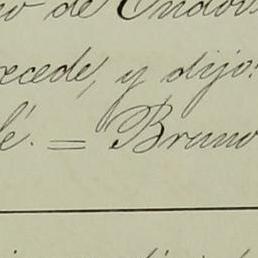 o de Endo
xcede, y dijo:
fé. = Bruno